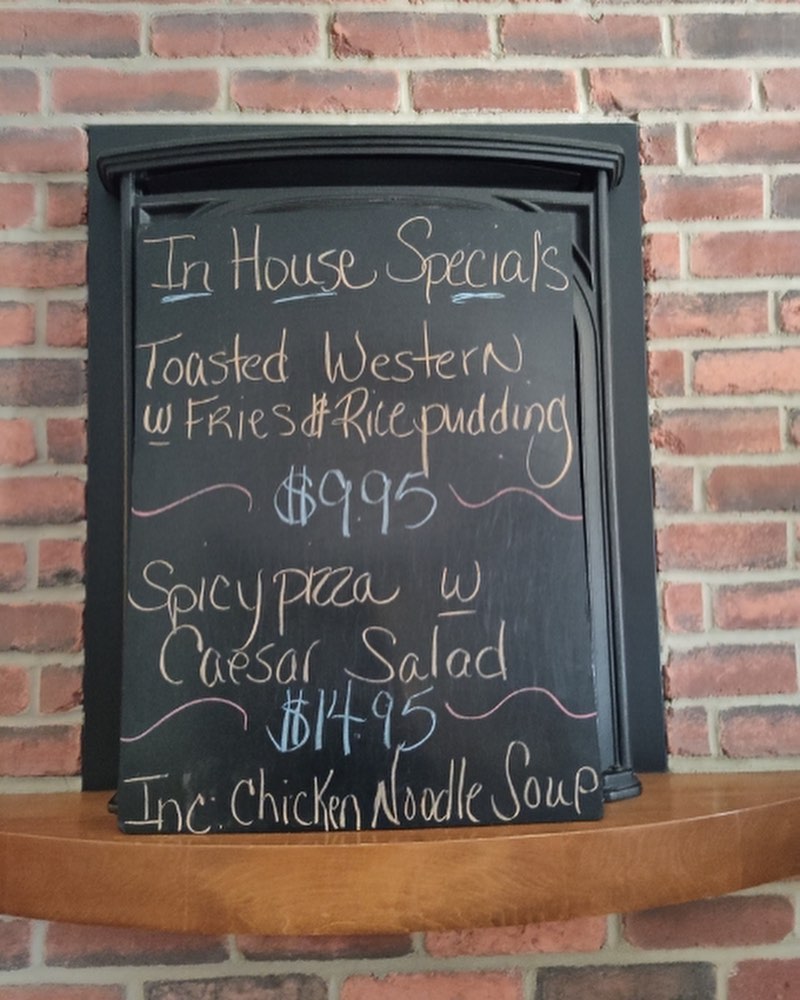 In House Specials
Toasted Western
w Fries & Rice pudding
$9.95
Spicy pizza w
Caesar Salad
$14.95
Inc: Chicken Noodle Soup